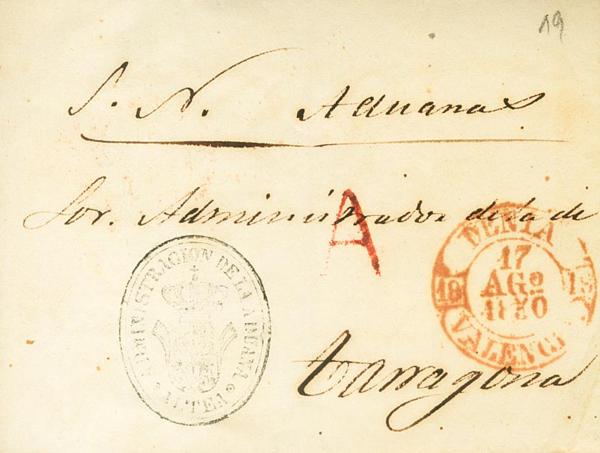 19
S. N. Aduanas
Sor. Administrador de la de
A
DENIA
17
AGO
1850
18 18
VALENC
ADMINISTRACION DE LA ADUANA
ALTEA
Tarragona